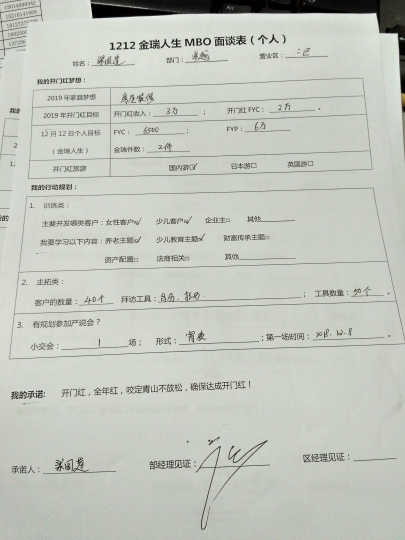 15014899342
15218141968
1212 金瑞人生 MBO 面谈表（个人）
姓名： 部门： 营业区：二区
我的开门红梦想：
2019 年家庭梦想
2019 年开门红目标 开门红收入：3万； 开门红 FYC：2万。
12 月 12 日个人目标（金瑞人生） FYC：3500； FYP：6万
金瑞件数：2件
开门红旅游 国内游☑ 日本游□ 英国游□
我的行动规划：
1. 训练类：
主要开发哪类客户：女性客户☑ 少儿客户☑ 企业主□ 其他
我要学习以下内容：养老主题☑ 少儿教育主题☑ 财富传承主题□
资产配置□ 法商相关□ 其他
2. 主拓类：
客户的数量：40个 拜访工具：台历、 ； 工具数量：50个。
3. 有规划参加产说会？
小交会：1 场； 形式： ；第一场时间：2018.12.8。
我的承诺： 开门红，全年红，咬定青山不放松，确保达成开门红！
承诺人： 部经理见证： 区经理见证：